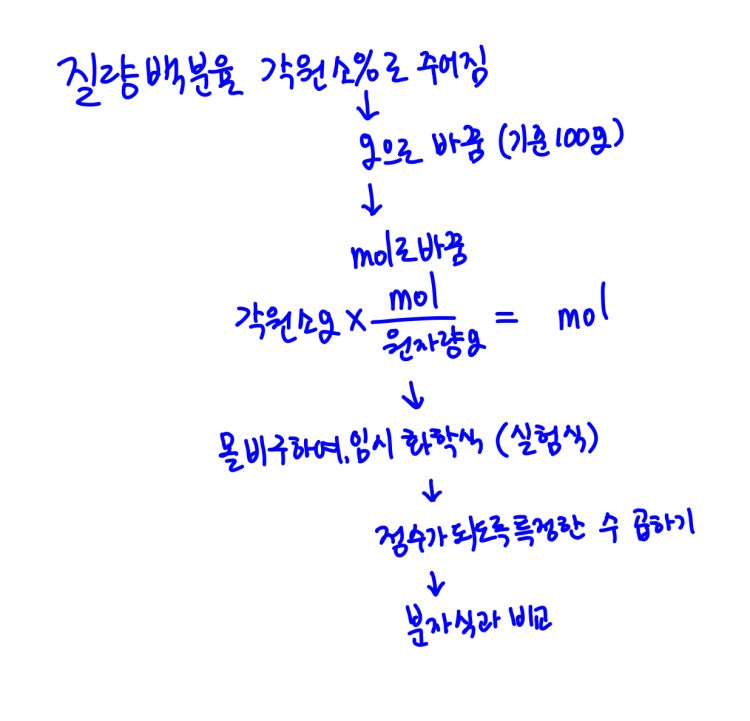 질량백분율 각원소%로 주어짐
↓
g으로 바꿈 (기준100g)
↓
mol로바꿈
각원소g × mol/원자량g = mol
↓
몰비구하여, 임시 화학식 (실험식)
↓
정수가되도록특정한 수 곱하기
↓
분자식과 비교